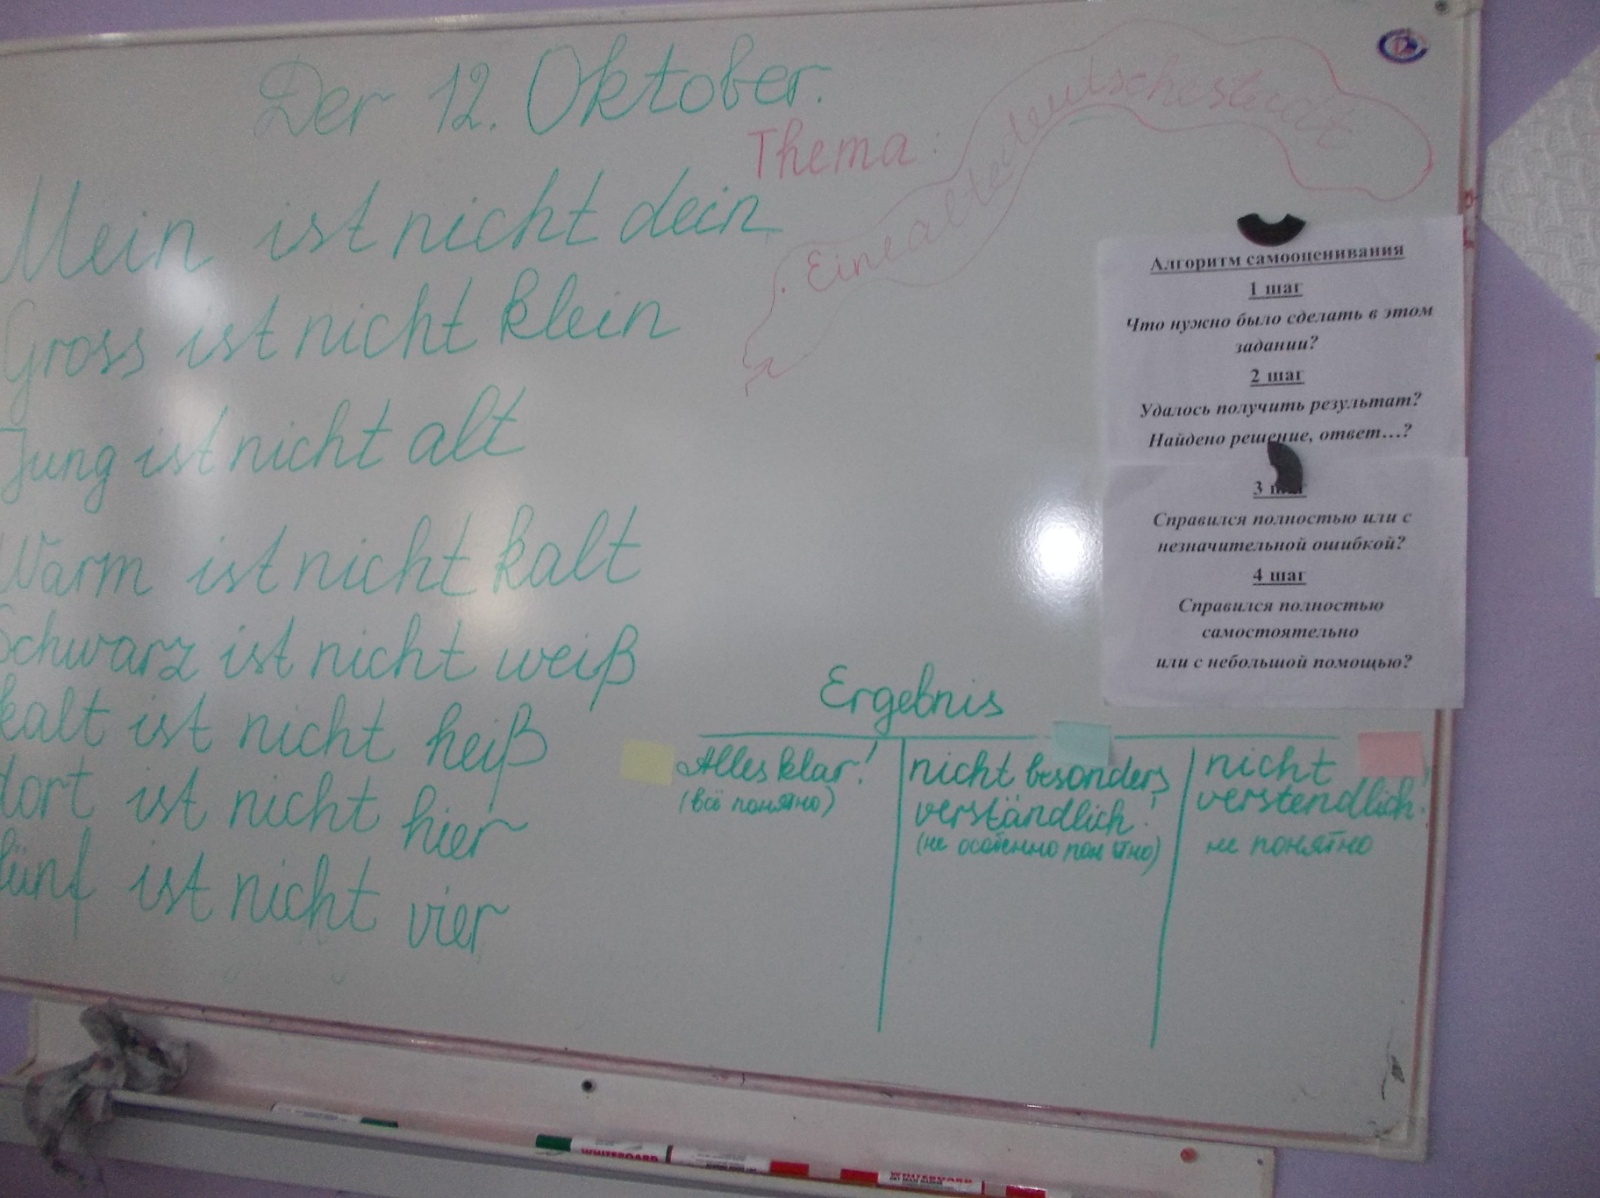 Der 12. Oktober.
Thema:
Einealtedeutschestadt
Mein ist nicht dein
Gross ist nicht klein
Jung ist nicht alt
Warm ist nicht kalt
Schwarz ist nicht weiß
kalt ist nicht heiß
dort ist nicht hier
fünf ist nicht vier
Алгоритм самооценивания
1 шаг
Что нужно было сделать в этом
задании?
2 шаг
Удалось получить результат?
Найдено решение, ответ...?
3 шаг
Справился полностью или с
незначительной ошибкой?
4 шаг
Справился полностью
самостоятельно
или с небольшой помощью?
Ergebnis
Alles klar!
(всё понятно)
nicht besonders
verständlich!
(не особенно понятно)
nicht
verstendlich!
не понятно
WHITEBOARD
WHITEBOARD